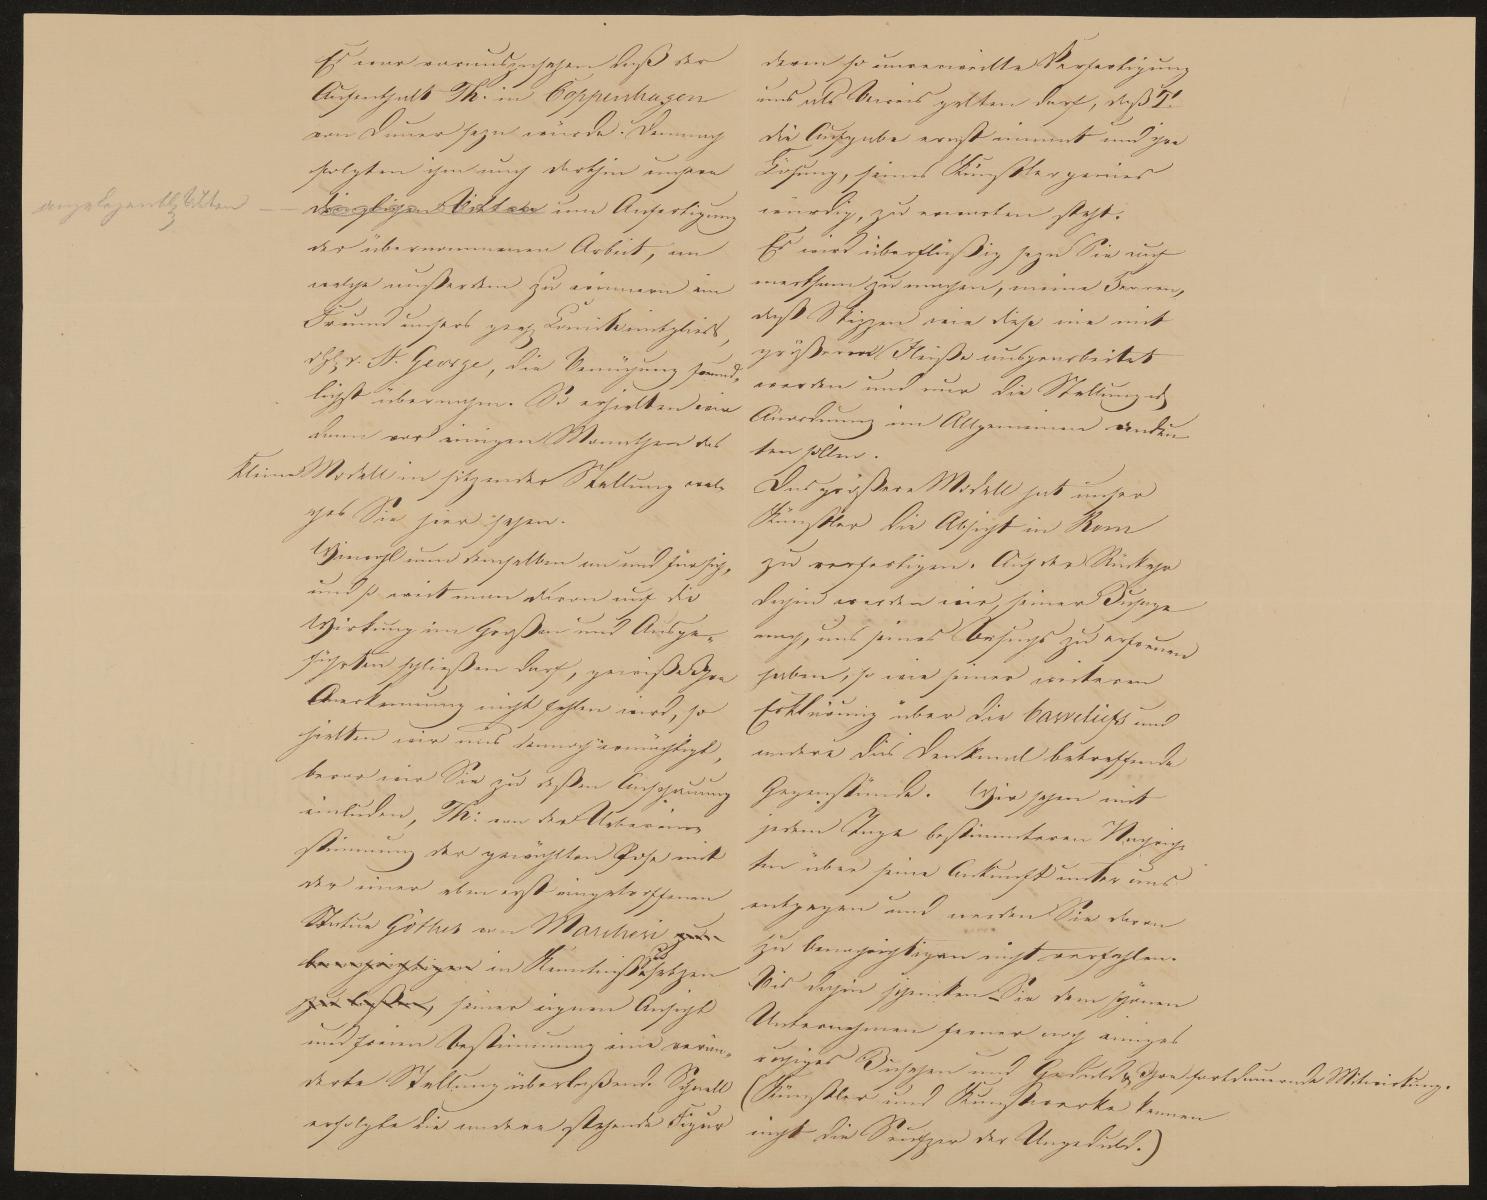 Es war vorauszusehen daß der
Aufenthalt Th: in Coppenhagen
von Dauer seyn würde. Demnach
folgten ihm auch dorthin unsere
angelegentl. Bitten
dringlichen Bitten um Anfertigung
der übernommenen Arbeit, an
welche außerdem zu erinnern ein
Freund unsers geeh. Comitémitglieds,
d. H. v. St. George, die Bemühung freund-
lichst übernahm. So erhielten wir
denn vor einigen Monathen das
kleine Modell in sitzender Stellung wel-
ches Sie hier sehen.
Wiewohl nun demselben an und für sich,
und so weit man davon auf die
Wirkung im Großen und Ausge-
führten schließen darf, gewiß Ihre
Anerkennung nicht fehlen wird, so
hielten wir uns dennoch ermächtigt,
bevor wir Sie zu deßen Anschauung
einluden, Th: von der Ueberein-
stimmung der gewählten Pose mit
der einer eben erst eingetroffenen
Statue Göthes von Marchesi zu
benachrichtigen in Kenntniß zu setzen
zu laßen, seiner eignen Ansicht
und freien Bestimmung eine verän-
derte Stellung überlaßend. Schnell
erfolgte die andere stehende Figur
deren so unverweilte Verfertigung
uns als Beweis gelten darf, daß T.
die Aufgabe ernst nimmt und ihre
Lösung, seines Künstlergenies
würdig, zu erwarten steht.
Es wird überflüßig seyn Sie auf-
merksam zu machen, meine Herren,
daß Skizzen wie diese nie mit
größerem Fleiße ausgearbeitet
werden und nur die Stellung u.
Anordnung im Allgemeinen andeu-
ten sollen.
Das größere Modell hat unser
Künstler die Absicht in Rom
zu verfertigen. Auf der Rückreise
dahin werden wir, seiner Zusage
nach, uns seines Besuchs zu erfreuen
haben, so wie seiner weiteren
Erklärung über die basreliefs und
andere das Denkmal betreffende
Gegenstände. Wir sehen mit
jedem Tage bestimmteren Nachrich-
ten über seine Ankunft unter uns
entgegen und werden Sie davon
zu benachrichtigen nicht verfehlen.
Bis dahin schenken Sie dem schönen
Unternehmen ferner noch einiges
ruhiges Zusehen und Geduld u. Ihre fortdauernde Mitwirkung.
(Künstler und Kunstwerke kennen
nicht die Seufzer der Ungeduld.)